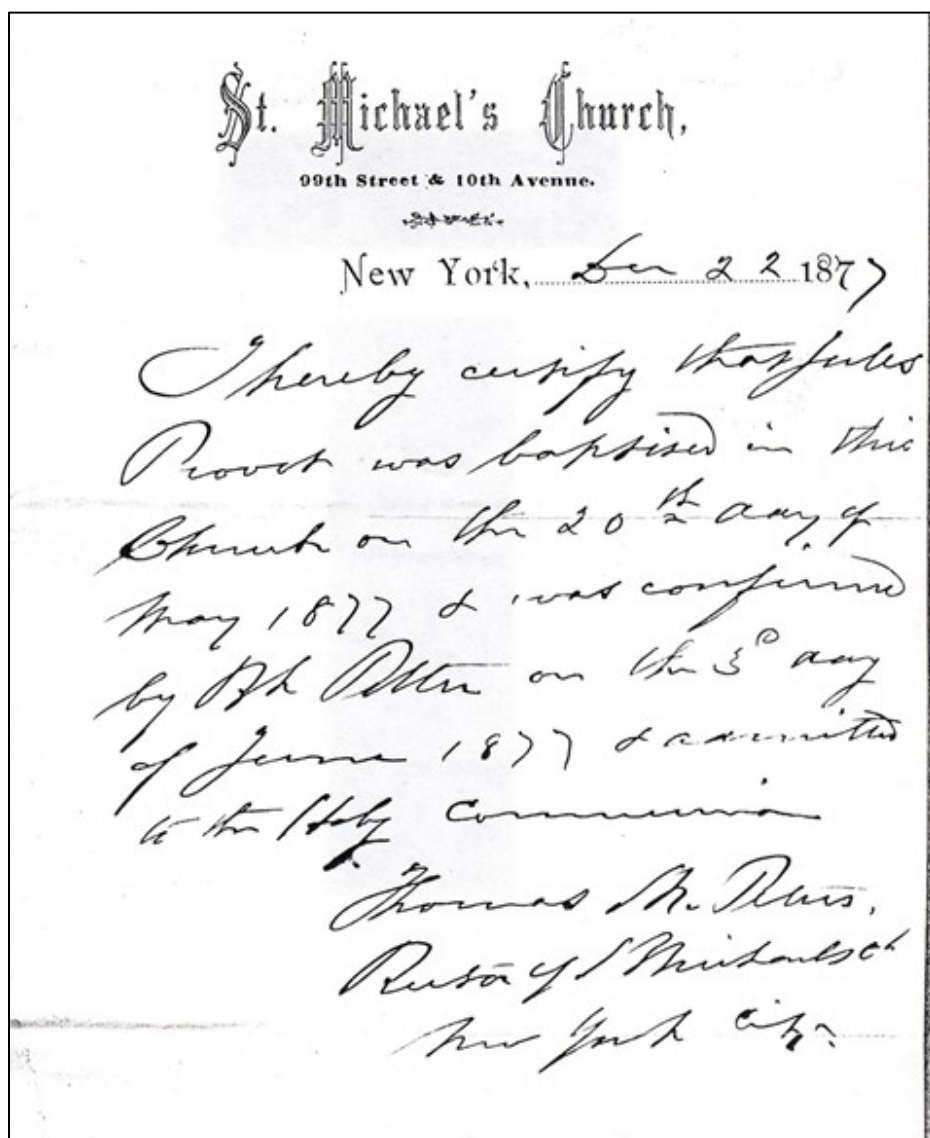 St. Michael's Church,
99th Street & 10th Avenue.
New York, Dec 22 1877
I hereby certify that Jules
Provost was baptised in this
Church on the 20th day of
May 1877 & was confirmed
by Bh Potter on the 3d day
of June 1877 & admitted
to the Holy Communion
Thomas M. Peters,
Rector of S Michaels Ch
New York City.